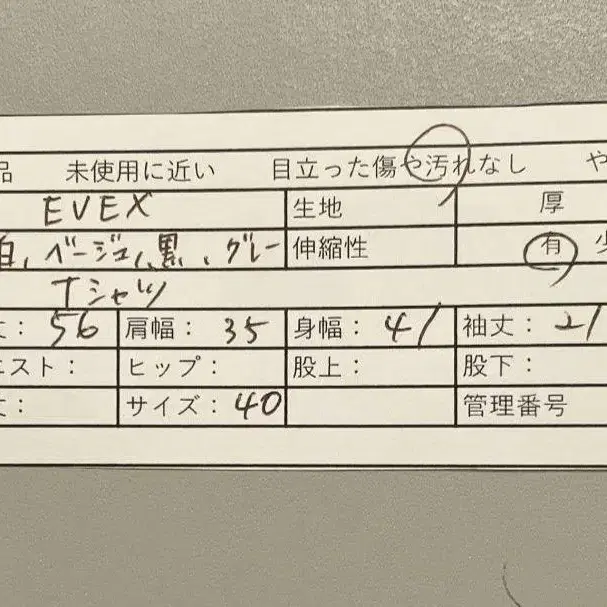 品 未使用に近い 目立った傷や汚れなし や
EVEX 生地 厚
白、ベージュ、黒、グレー 伸縮性 有 少
Tシャツ
丈： 56 肩幅： 35 身幅： 41 袖丈： 21
エスト： ヒップ： 股上： 股下：
丈： サイズ： 40 管理番号